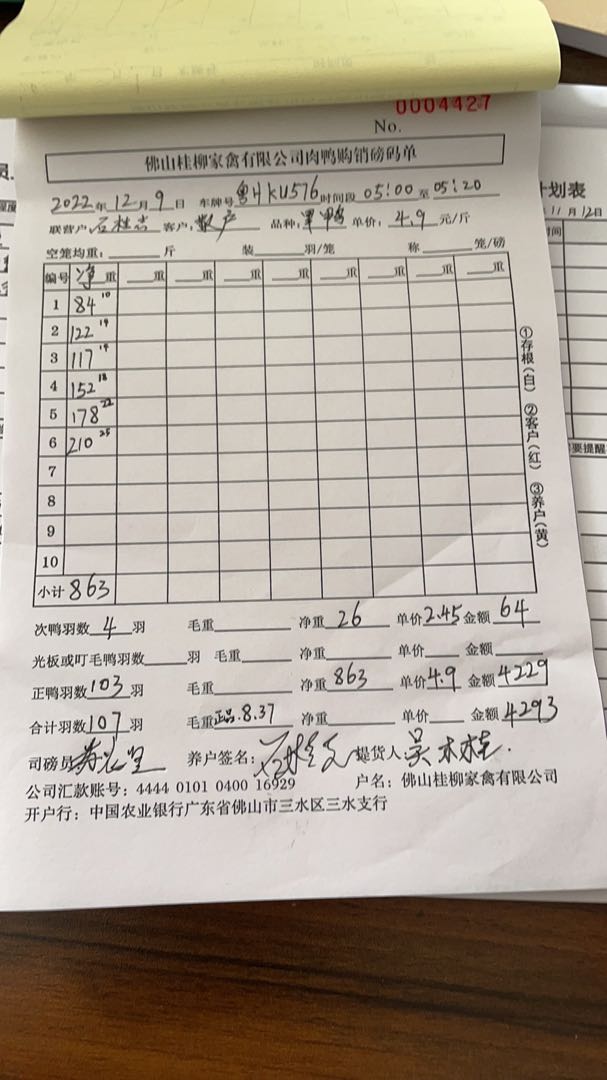 0004427
No.
佛山桂柳家禽有限公司肉鸭购销磅码单
2022年12月9日 车牌号粤HKU576时间段05:00至05:20
联营户 客户:散户 品种, 单价:4.9元/斤
空笼均重:____斤 装____羽/笼 称____笼/磅
编号 净重 __重 __重 __重 __重 __重 __重 __重
1 84 10
2 122 14
3 117 14
4 152 18
5 178 22
6 210 25
7
8
9
10
小计 863
次鸭羽数4羽 毛重____ 净重26 单价2.45金额64
光板或叮毛鸭羽数____羽 毛重____ 净重____ 单价____金额____
正鸭羽数103羽 毛重____ 净重863 单价4.9金额4229
合计羽数107羽 毛重正品.8.37 净重____ 单价____金额4293
司磅员 养户签名: 提货人:吴木桂.
公司汇款账号:4444 0101 0400 16929 户名:佛山桂柳家禽有限公司
开户行:中国农业银行广东省佛山市三水区三水支行
①存根(白) ②客户(红) ③养户(黄)
员.
计划表
11月12日
时间
要提醒